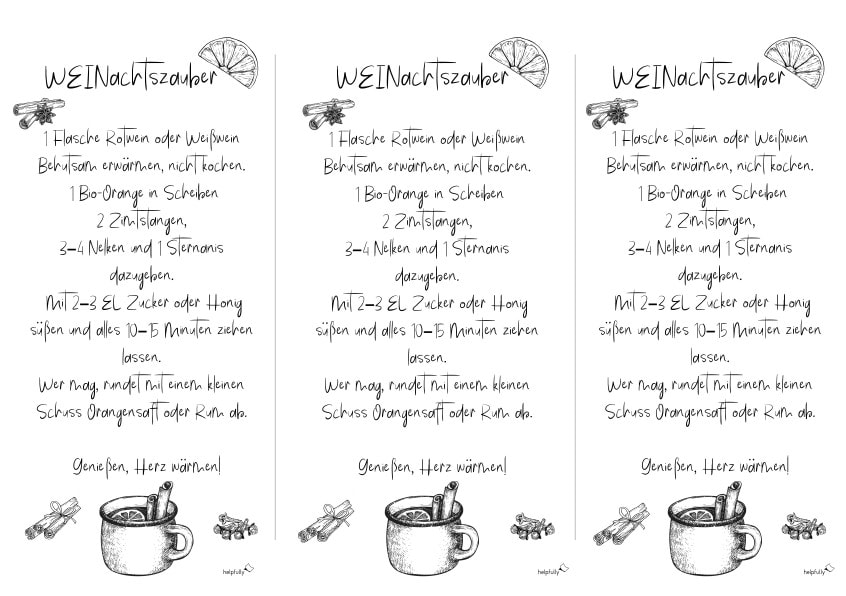 WEINachtszauber
1 Flasche Rotwein oder Weißwein
Behutsam erwärmen, nicht kochen.
1 Bio-Orange in Scheiben
2 Zimtstangen,
3–4 Nelken und 1 Sternanis
dazugeben.
Mit 2–3 EL Zucker oder Honig
süßen und alles 10–15 Minuten ziehen
lassen.
Wer mag, rundet mit einem kleinen
Schuss Orangensaft oder Rum ab.
Genießen, Herz wärmen!
helpfully
WEINachtszauber
1 Flasche Rotwein oder Weißwein
Behutsam erwärmen, nicht kochen.
1 Bio-Orange in Scheiben
2 Zimtstangen,
3–4 Nelken und 1 Sternanis
dazugeben.
Mit 2–3 EL Zucker oder Honig
süßen und alles 10–15 Minuten ziehen
lassen.
Wer mag, rundet mit einem kleinen
Schuss Orangensaft oder Rum ab.
Genießen, Herz wärmen!
helpfully
WEINachtszauber
1 Flasche Rotwein oder Weißwein
Behutsam erwärmen, nicht kochen.
1 Bio-Orange in Scheiben
2 Zimtstangen,
3–4 Nelken und 1 Sternanis
dazugeben.
Mit 2–3 EL Zucker oder Honig
süßen und alles 10–15 Minuten ziehen
lassen.
Wer mag, rundet mit einem kleinen
Schuss Orangensaft oder Rum ab.
Genießen, Herz wärmen!
helpfully